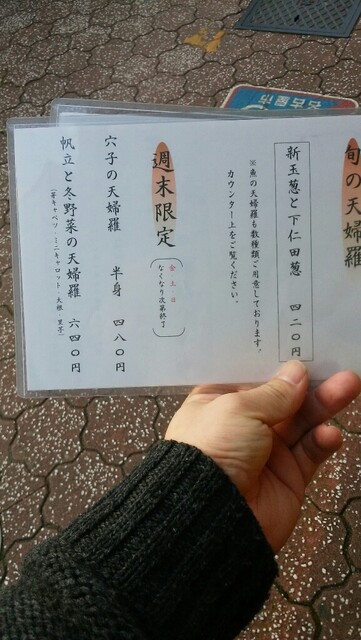 旬の天婦羅
新玉葱と下仁田葱 四二〇円
※魚の天婦羅も数種類ご用意しております。
カウンター上をご覧ください。
週末限定
金 土 日
なくなり次第終了
穴子の天婦羅 半身 四八〇円
帆立と冬野菜の天婦羅 六四〇円
(芽キャベツ・ミニキャロット・大根・里子)
名古屋市